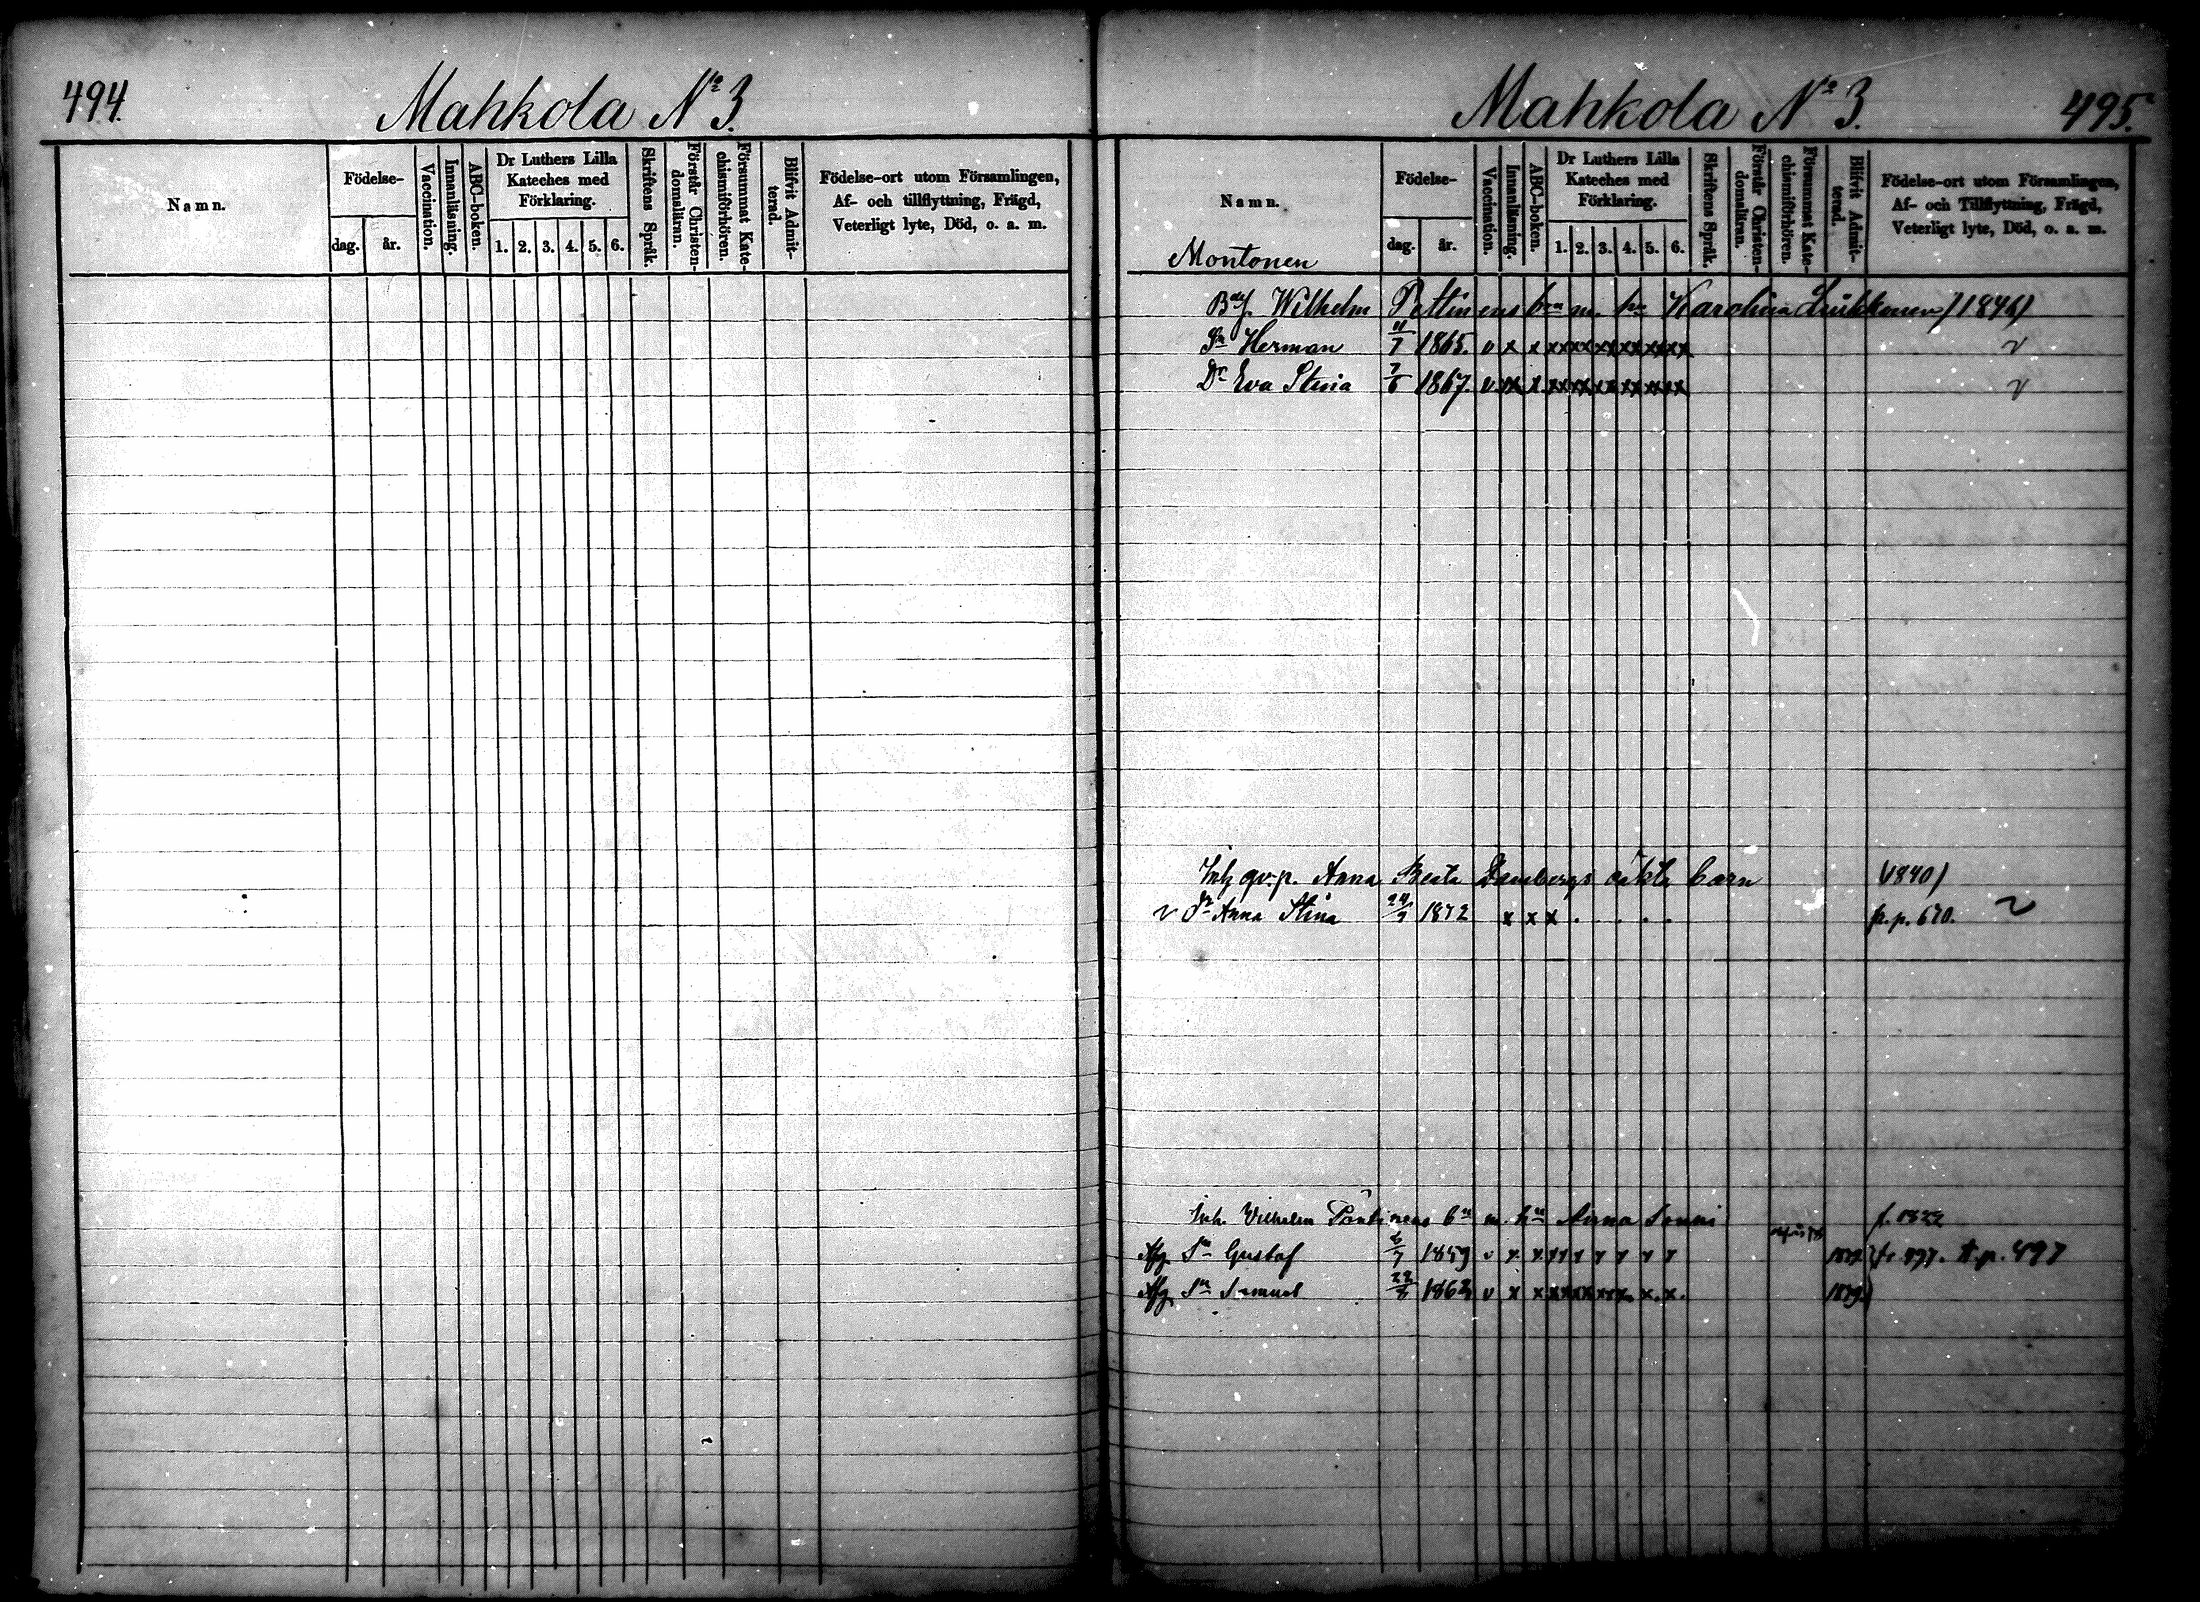 494.
Mahkola No 3.
Namn.
Födelse-
dag.
år.
Vaccination.
Innanläsning.
ABC-boken.
Dr Luthers Lilla
Kateches med
Förklaring.
1. 2. 3. 4. 5. 6.
Skriftens Språk.
Förstår Christen-
domsläran.
Försummat Kate-
chismiförhören.
Blifvit Admit-
terad.
Födelse-ort utom Församlingen,
Af- och tillflyttning, Frägd,
Veterligt lyte, Död, o. a. m.
Mahkola No 3.
495.
Namn.
Födelse-
dag.
år.
Vaccination.
Innanläsning.
ABC-boken.
Dr Luthers Lilla
Kateches med
Förklaring.
1. 2. 3. 4. 5. 6.
Skriftens Språk.
Förstår Christen-
domsläran.
Försummat Kate-
chismiförhören.
Blifvit Admit-
terad.
Födelse-ort utom Församlingen,
Af- och Tillflyttning, Frägd,
Veterligt lyte, Död, o. a. m.
Montonen
Wilhelm Pettinens bn m. hu Karolina
Sn Herman 11/7 1865. v x x
Dr Eva Stina 7/6 1867. v
Inh qv.p. Anna Beata Dambergs oäkta barn 1840/
v Dr Anna Stina 1872 x x x . . . . fr. p. 670. v
Inh. Vilhelm bn m. hu Anna
Afg Sn Gustaf 1859 v t. p. 497
Afg Sn Samuel 22/8 1862 v x x 1879.